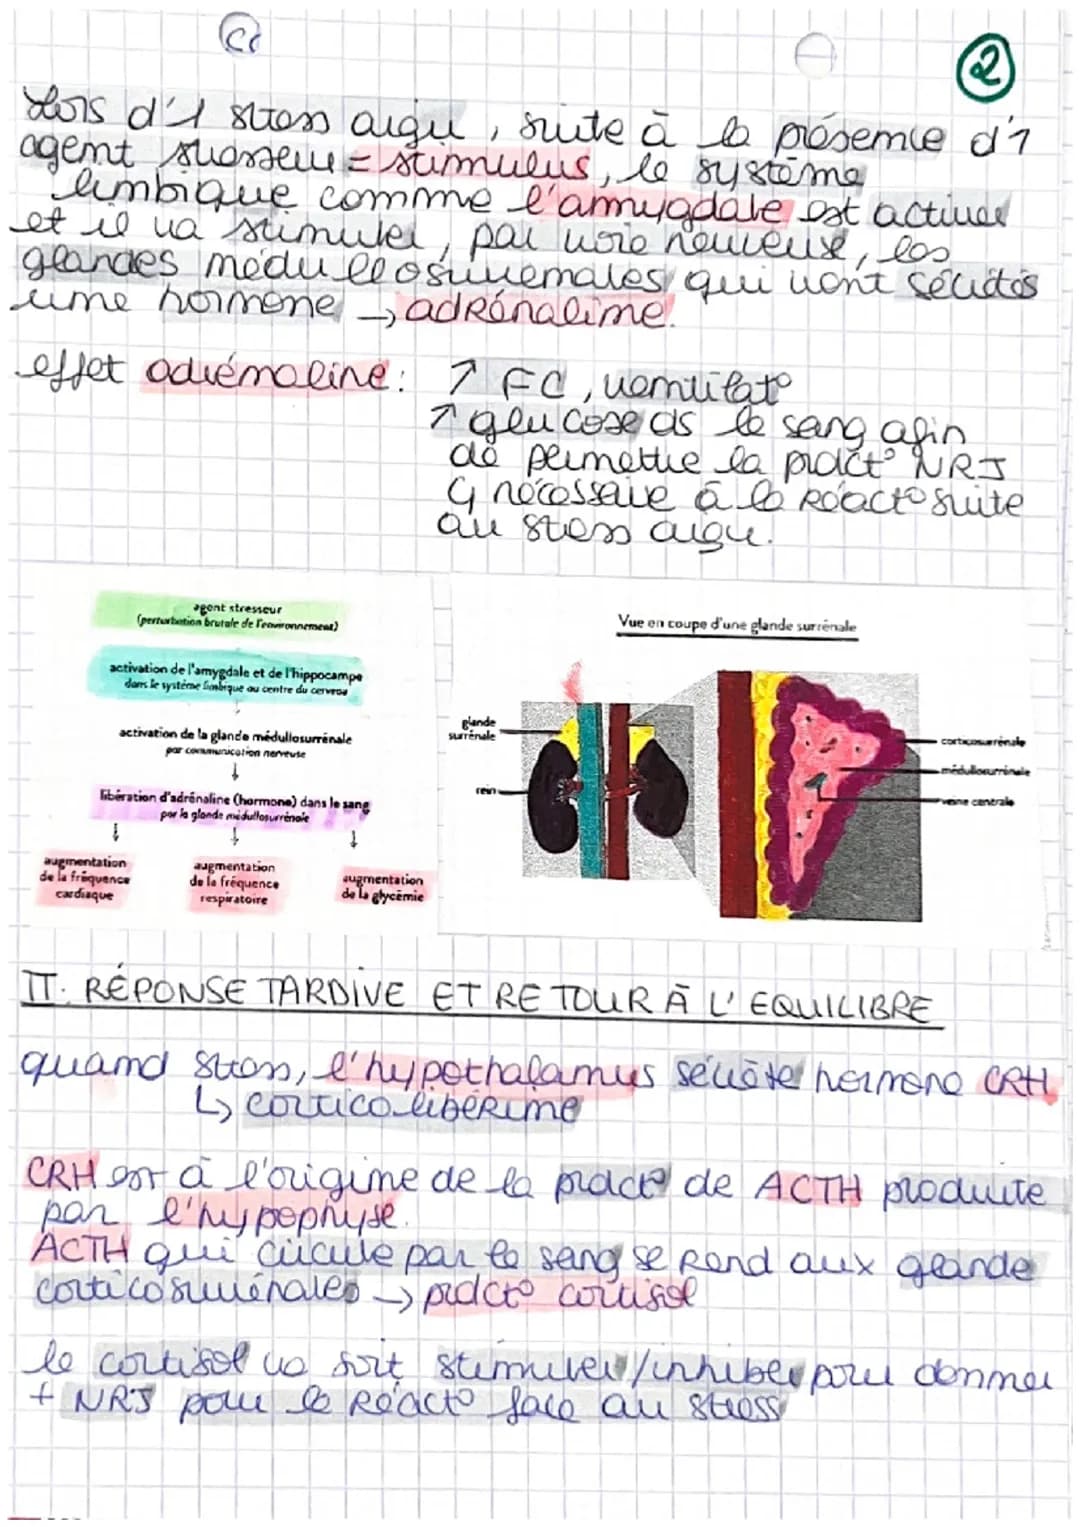 2
Lors d'1 stress aigu, suite à la présence d'1
agent stresseur = stimulus, le système
limbique comme l'amygdale est activer
et il va stimuler, par voie nerveuse, les
glandes médullosurrénales qui vont sécrétés
une hormone → adrénaline.
effet adrénaline : ↗ FC, ventilat°
↗ glucose ds le sang afin
de permettre la prdct° NRJ
↳ nécessaire à la réact° suite
au stress aigu.
agent stresseur
(perturbation brutale de l'environnement)
activation de l'amygdale et de l'hippocampe
dans le système limbique au centre du cerveau
activation de la glande médullosurrénale
par communication nerveuse
↓
libération d'adrénaline (hormone) dans le sang
par la glande médullosurrénale
↓ ↓ ↓
augmentation
de la fréquence
cardiaque
augmentation
de la fréquence
respiratoire
augmentation
de la glycémie
Vue en coupe d'une glande surrénale
glande
surrénale
rein
corticosurrénale
médullosurrénale
veine centrale
II. RÉPONSE TARDIVE ET RETOUR À L'EQUILIBRE
quand stress, l'hypothalamus sécrète hormone CRH
↳ corticolibérine
CRH est à l'origine de la prdct° de ACTH produite
par l'hypophyse.
ACTH qui circule par le sang se rend aux glande
corticosurrénales → prdct° cortisol
le cortisol va soit stimuler/inhiber pour donner
+ NRJ pour le réact° face au stress